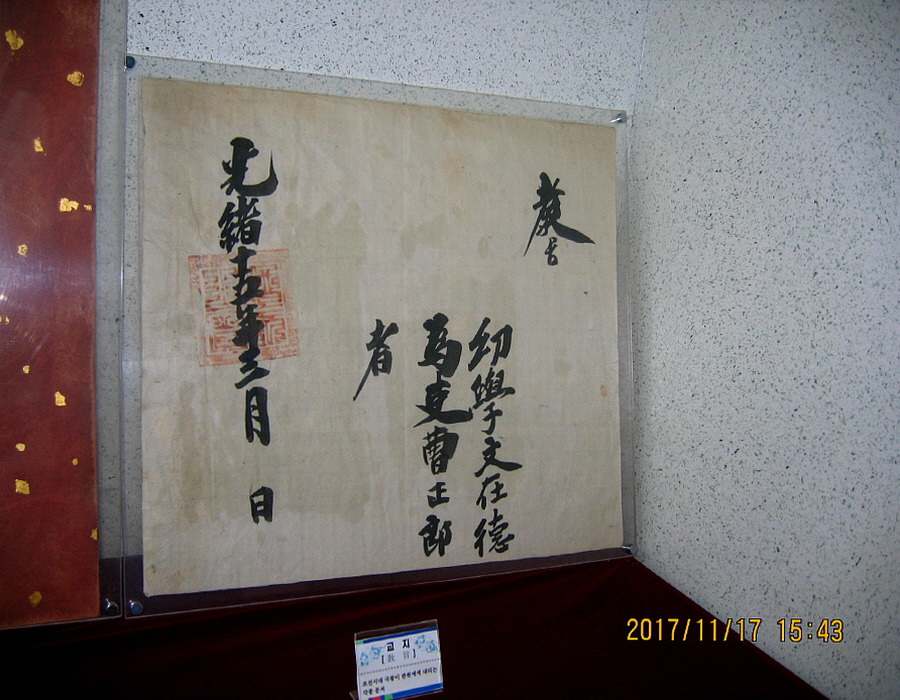 敎旨
幼學文在德
爲吏曹正郎
者
光緖十五年三月 日
교 지
[敎 旨]
조선시대 국왕이 관원에게 내리는
각종 문서
2017/11/17 15:43